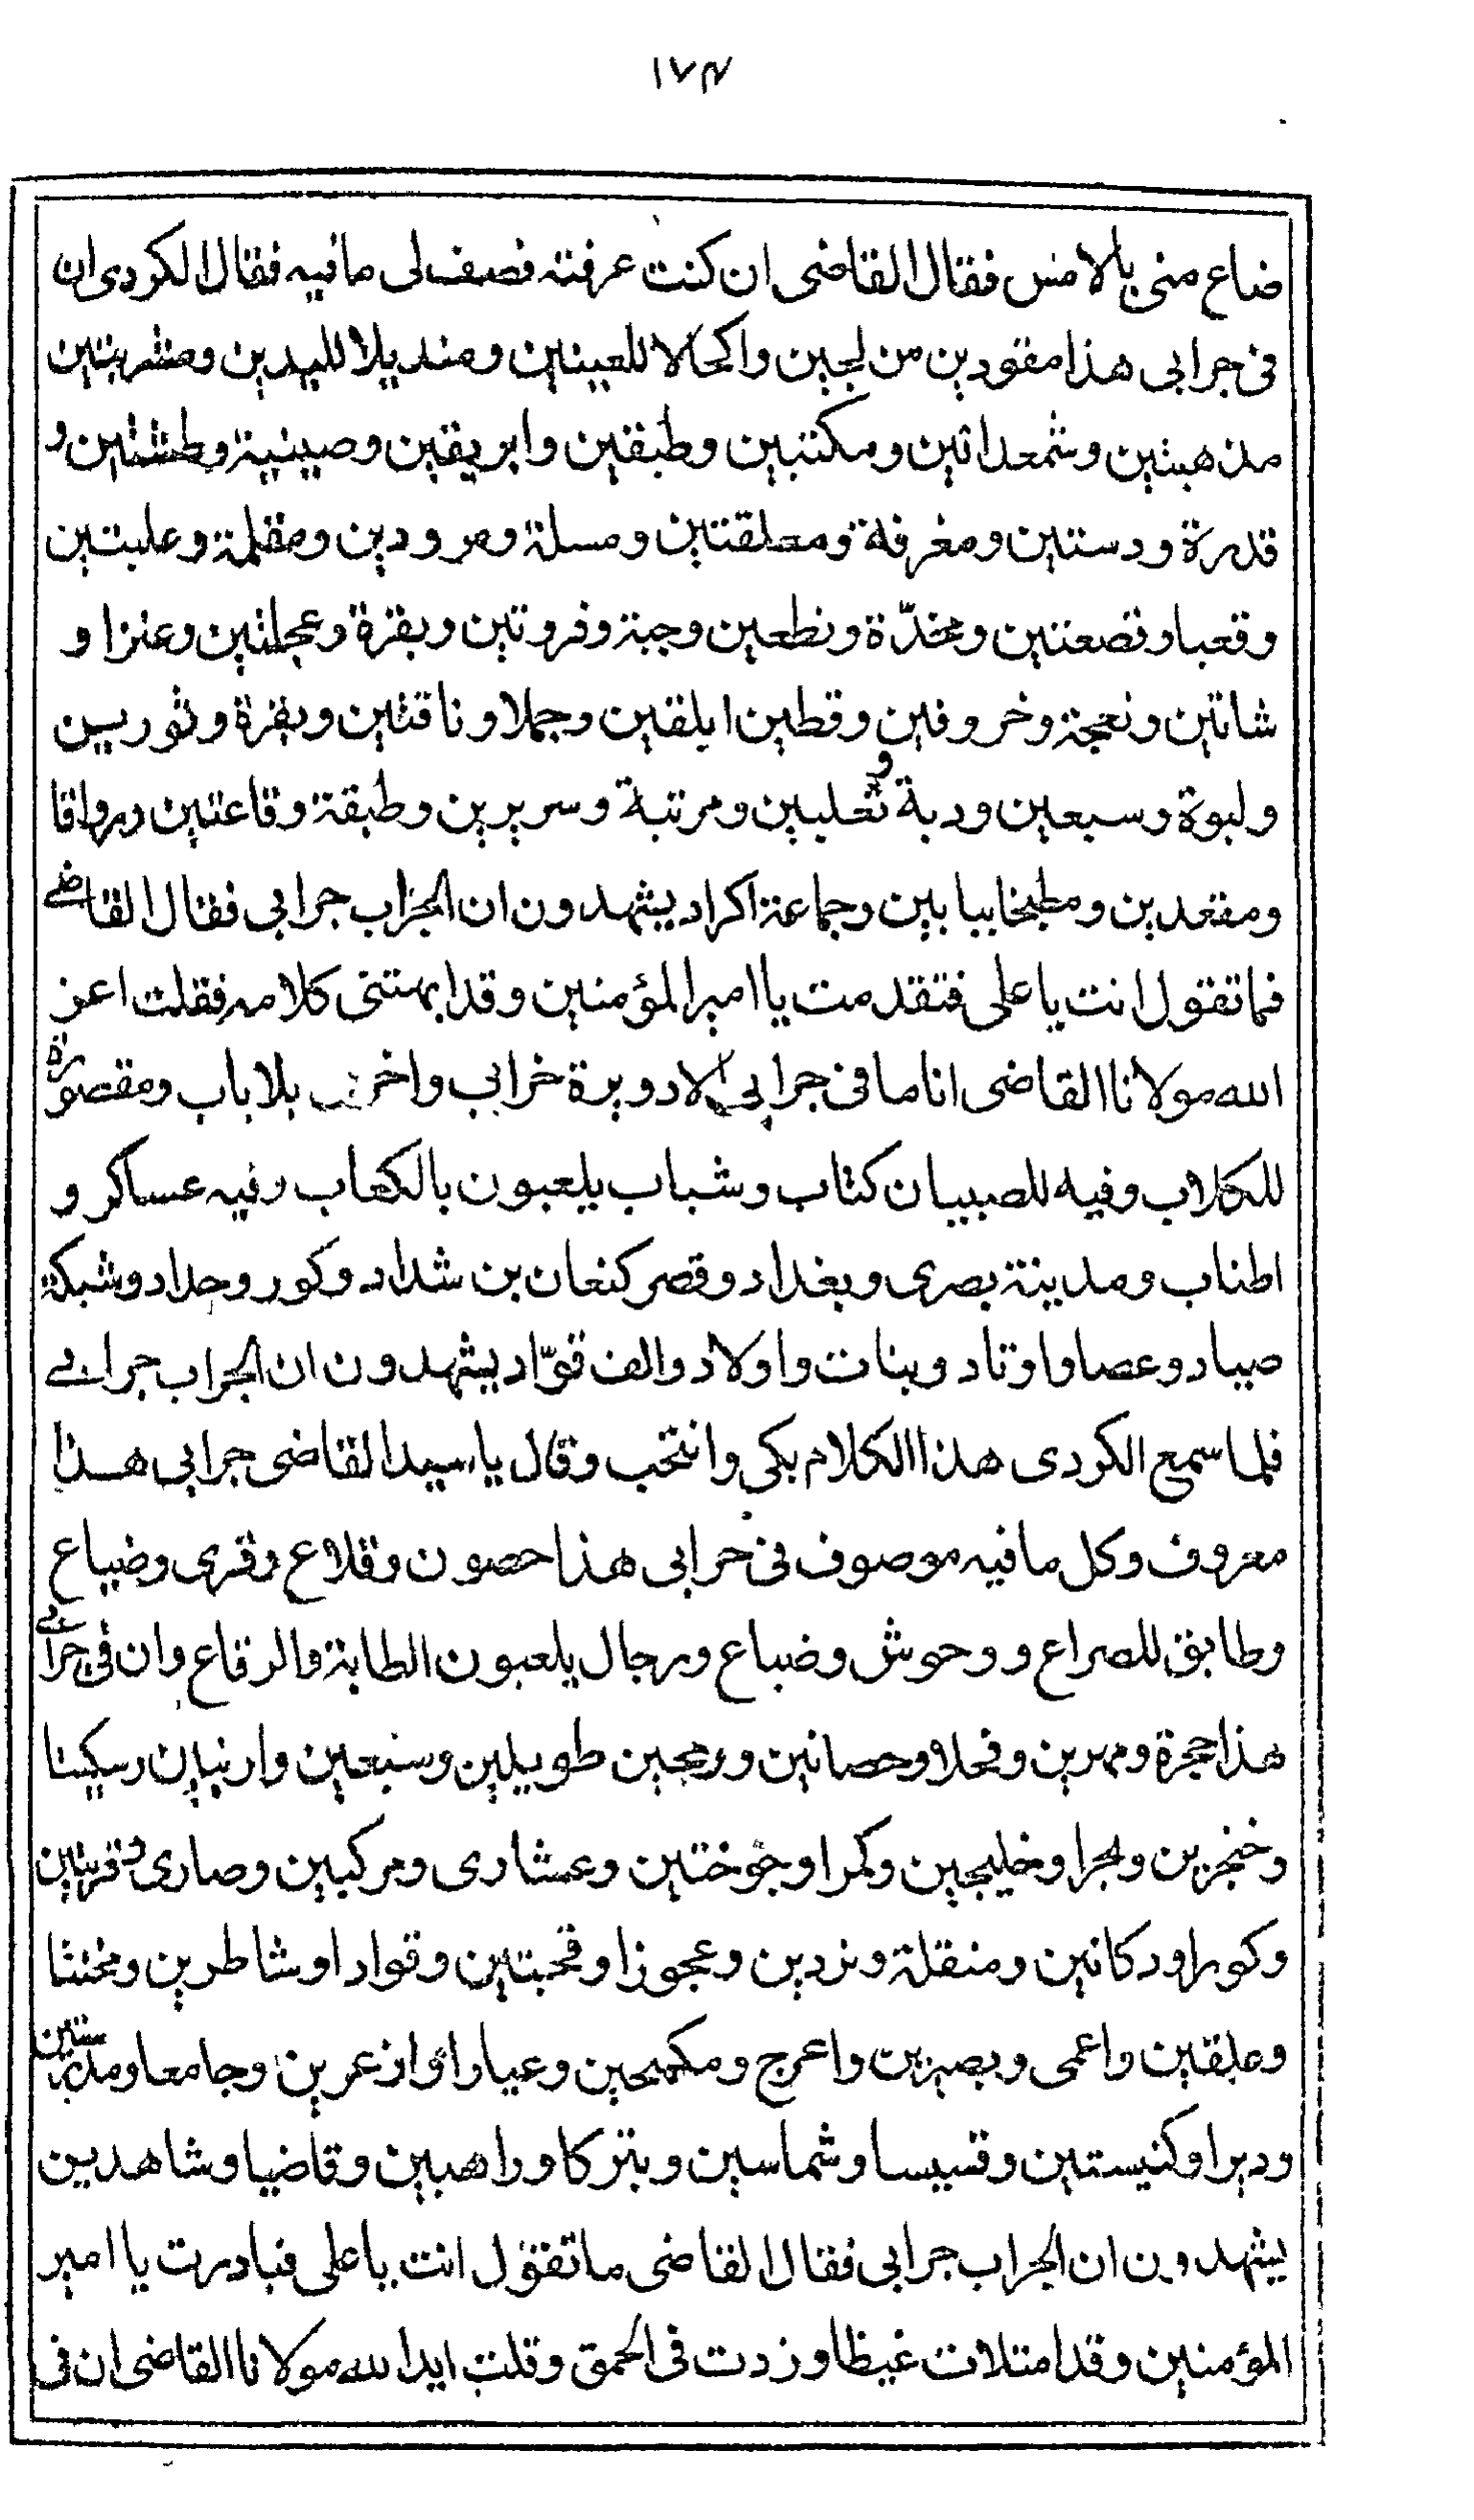 ١٧٣
ضاع منى بالامس فقال القاضى ان كنت عرفته فصف لى ما فيه فقال الكردى ان
فى جرابى هذا مقودين من لجين واكحالا للعينين ومنديلا لليدين ومشربتين
مذهبتين وشمعدانين ومكتبين وطبقين وابريقين وصينية وطشتين و
قدرة ودستين ومغرفة ومعلقتين ومسلة ومرودين ومقلمة وعلبتين
وقعبا وقصعتين ومخدّة ونطعين وجبة وفروتين وبقرة وعجلتين وعنزا و
شاتين ونعجة وخروفين وقطين ابلقين وجملا وناقتين وبقرة وثورين
ولبوة وسبعين ودبة وثعلبين ومرتبة وسريرين وطبقة وقاعتين ورواقا
ومقعدين ومطبخا ببابين وجماعة اكراد يشهدون ان الجراب جرابى فقال القاضى
فما تقول انت يا على فتقدمت يا امير المؤمنين وقد ابهتنى كلامه فقلت اعز
الله مولانا القاضى انا ما فى جرابى الا دويرة خراب واخرى بلا باب ومقصورة
للكلاب وفيه للصبيان كتاب وشباب يلعبون بالكعاب وفيه عساكر و
اطناب ومدينة بصرى وبغداد وقصر كنعان بن شداد وكور وحداد وشبكة
صياد وعصا واوتاد وبنات واولاد والف قوّاد يشهدون ان الجراب جرابى
فلما سمع الكردى هذا الكلام بكى وانتحب وقال يا سيد القاضى جرابى هذا
معروف وكل ما فيه موصوف فى جرابى هذا حصون وقلاع وقرى وضياع
وطابق للصراع ووحوش وضباع ورجال يلعبون الطابة والرقاع وان فى جرابى
هذا حجرة ومهرين وفحلا وحصانين ورمحين طويلين وسبعين وارنبين وسكينا
وخنجرين وبحرا وخليجين وكمرا وجوختين وعشارى ومركبين وصارى وقريتين
وكورا ودكانين ومنقلة ونردين وعجوزا وقحبتين وقوادا وشاطرين ومخنثا
وعلقين واعمى وبصيرين واعرج ومكسحين وعيارا وازعرين وجامعا ومدرستين
وديرا وكنيستين وقسيسا وشماسين وبتركا وراهبين وقاضيا وشاهدين
يشهدون ان الجراب جرابى فقال القاضى ما تقول انت يا على فبادرت يا امير
المؤمنين وقد امتلات غيظا وزدت فى الحمق وقلت ايد الله مولانا القاضى ان فى